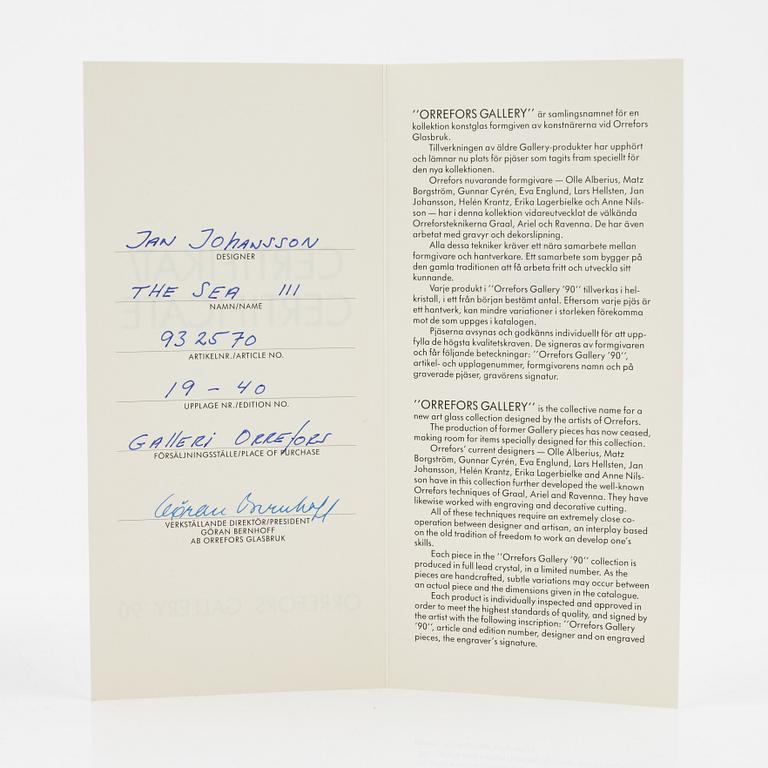 JAN JOHANSSON
DESIGNER
THE SEA III
NAMN/NAME
932570
ARTIKELNR./ARTICLE NO.
19 - 40
UPPLAGE NR./EDITION NO.
GALLERI ORREFORS
FÖRSÄLJNINGSSTÄLLE/PLACE OF PURCHASE
Göran Bernhoff
VERKSTÄLLANDE DIREKTÖR/PRESIDENT
GÖRAN BERNHOFF
AB ORREFORS GLASBRUK
''ORREFORS GALLERY'' är samlingsnamnet för en
kollektion konstglas formgiven av konstnärerna vid Orrefors
Glasbruk.
Tillverkningen av äldre Gallery-produkter har upphört
och lämnar nu plats för pjäser som tagits fram speciellt för
den nya kollektionen.
Orrefors nuvarande formgivare — Olle Alberius, Matz
Borgström, Gunnar Cyrén, Eva Englund, Lars Hellsten, Jan
Johansson, Helén Krantz, Erika Lagerbielke och Anne Nils-
son — har i denna kollektion vidareutvecklat de välkända
Orreforsteknikerna Graal, Ariel och Ravenna. De har även
arbetat med gravyr och dekorslipning.
Alla dessa tekniker kräver ett nära samarbete mellan
formgivare och hantverkare. Ett samarbete som bygger på
den gamla traditionen att få arbeta fritt och utveckla sitt
kunnande.
Varje produkt i ''Orrefors Gallery '90'' tillverkas i hel-
kristall, i ett från början bestämt antal. Eftersom varje pjäs är
ett hantverk, kan mindre variationer i storleken förekomma
mot de som uppges i katalogen.
Pjäserna avsynas och godkänns individuellt för att upp-
fylla de högsta kvalitetskraven. De signeras av formgivaren
och får följande beteckningar: ''Orrefors Gallery '90'',
artikel- och upplagenummer, formgivarens namn och på
graverade pjäser, gravörens signatur.
''ORREFORS GALLERY'' is the collective name for a
new art glass collection designed by the artists of Orrefors.
The production of former Gallery pieces has now ceased,
making room for items specially designed for this collection.
Orrefors' current designers — Olle Alberius, Matz
Borgström, Gunnar Cyrén, Eva Englund, Lars Hellsten, Jan
Johansson, Helén Krantz, Erika Lagerbielke and Anne Nils-
son have in this collection further developed the well-known
Orrefors techniques of Graal, Ariel and Ravenna. They have
likewise worked with engraving and decorative cutting.
All of these techniques require an extremely close co-
operation between designer and artisan, an interplay based
on the old tradition of freedom to work an develop one's
skills.
Each piece in the ''Orrefors Gallery '90'' collection is
produced in full lead crystal, in a limited number. As the
pieces are handcrafted, subtle variations may occur between
an actual piece and the dimensions given in the catalogue.
Each product is individually inspected and approved in
order to meet the highest standards of quality, and signed by
the artist with the following inscription: ''Orrefors Gallery
'90'', article and edition number, designer and on engraved
pieces, the engraver's signature.